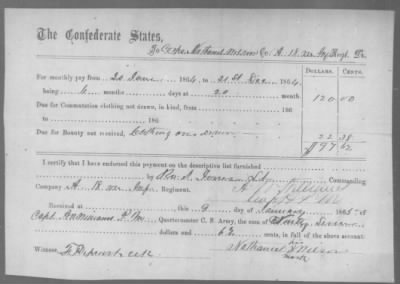 The Confederate States,
To Nathaniel Wilson Co. A. 18. Regt. Dr.
DOLLARS. CENTS.
For monthly pay from 20 June 1864, to 20 1864
being 6 months days at 20 month 120 00
Due for Commutation clothing not drawn, in kind, from 186
to 186
Due for Bounty not received, Clothing over drawn 22 38
$97 62
I certify that I have endorsed this payment on the descriptive list furnished
by Commanding
Company A. 18. Regiment.
Received at this 9 day of January 1865 of
Capt. Quartermaster C. S. Army, the sum of Ninety Seven
dollars and 62 cents, in full of the above account.
Witness, Nathaniel X Wilson
his
mark